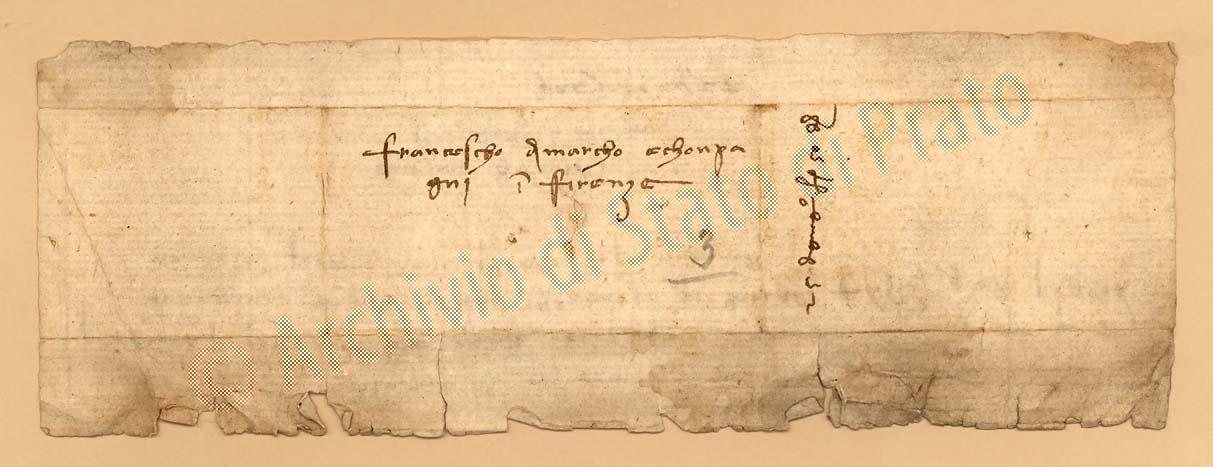 Francescho Dmarcho e chonpa
gni ĩ Firenze
3
© Archivio di Stato di Prato